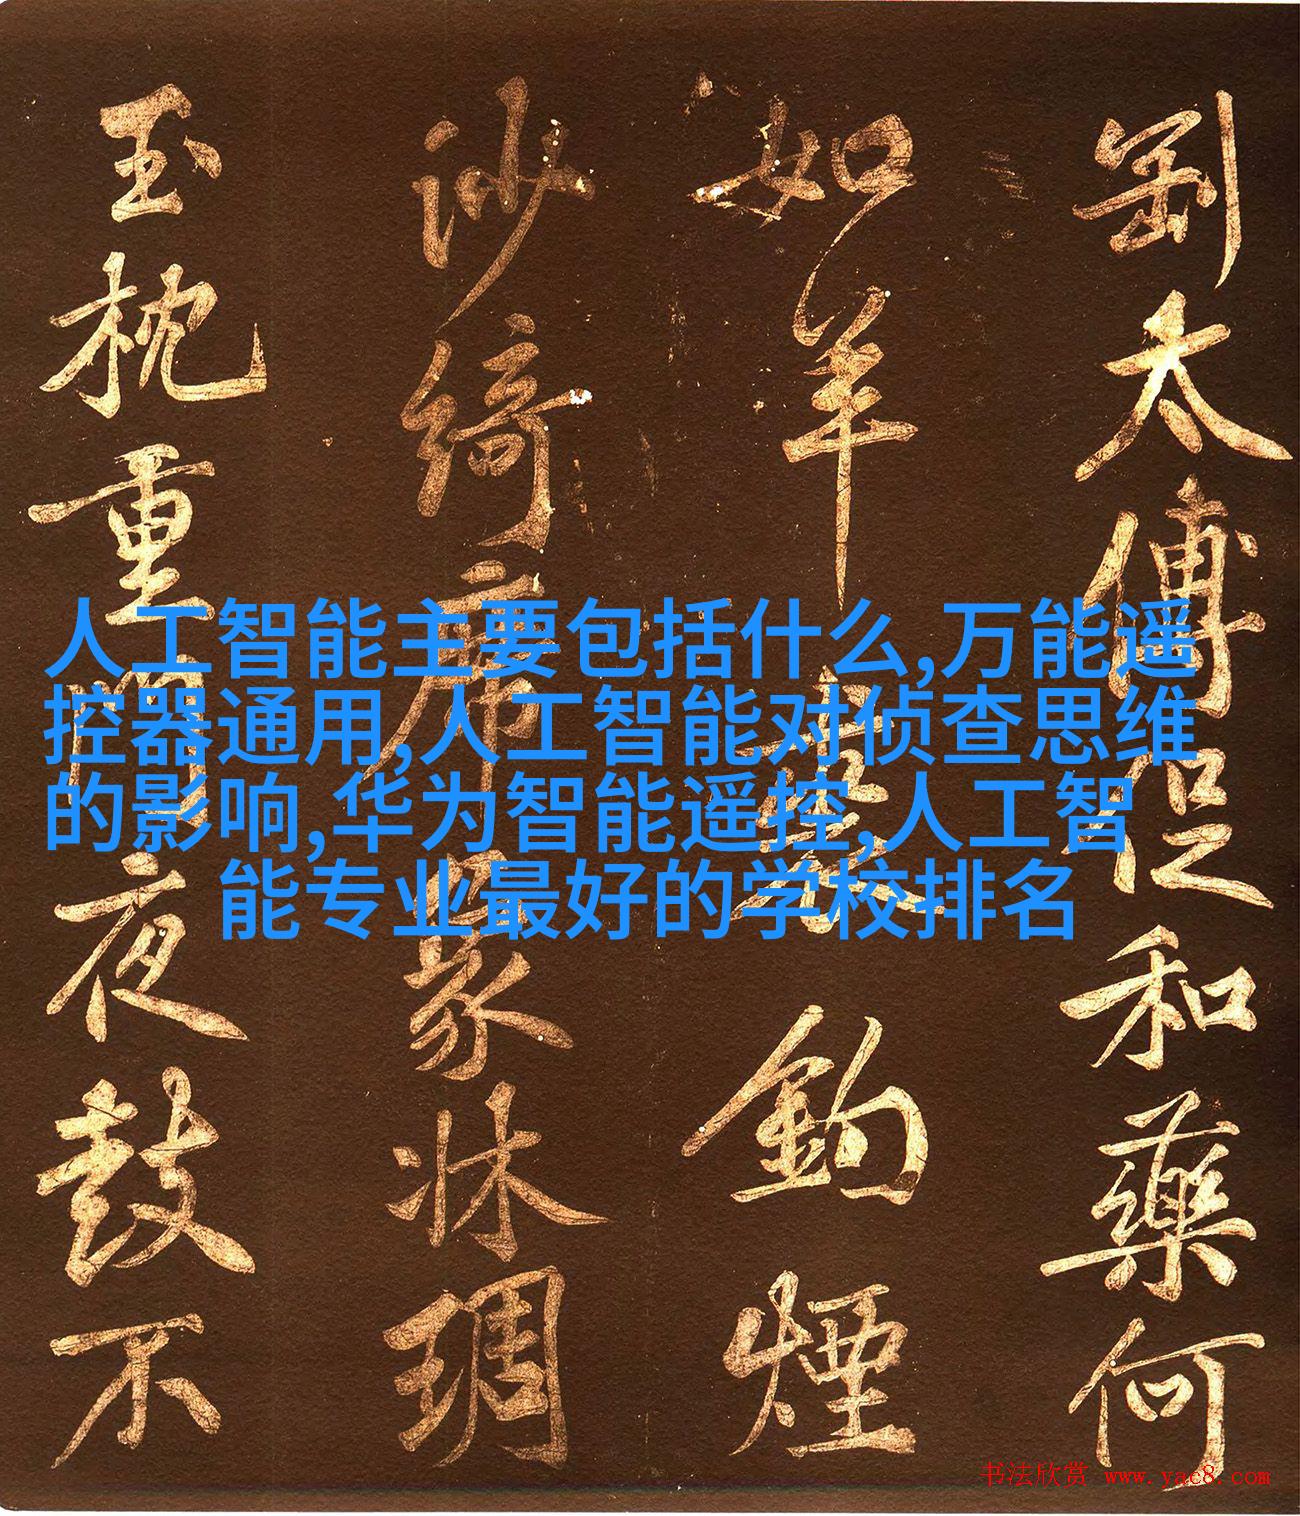 人工智能主要包括什么,万能遥
控器通用,人工智能对侦查思维
的影响,华为智能遥控,人工智
能专业最好的学校排名
太傅促和藥何
如羊鈎煙
沙綺席象牀琱
玉枕重門夜鼓不
书法欣赏 www.yac8.com